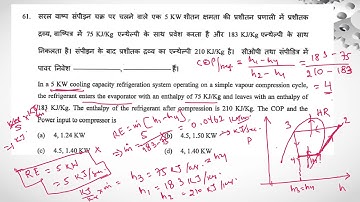 61. सरल वाष्प संपीड़न चक्र पर चलने वाले एक 5 KW शीतन क्षमता की प्रशीतन प्रणाली में प्रशीतक
द्रव्य, वाष्पित्र में 75 KJ/Kg एन्थेल्पी के साथ प्रवेश करता है और 183 KJ/Kg एन्थेल्पी के साथ
निकलता है। संपीड़न के बाद प्रशीतक द्रव्य का एन्थेल्पी 210 KJ/Kg है। सीओपी तथा संपीडित्र में
पावर निवेश है।
COP = h1-h4 / h2-h1 = 183-75 / 210-183
= 4
In a 5 KW cooling capacity refrigeration system operating on a simple vapour compression cycle,
the refrigerant enters the evaporator with an enthalpy of 75 KJ/Kg and leaves with an enthalpy of
183 KJ/Kg. The enthalpy of the refrigerant after compression is 210 KJ/Kg. The COP and the
Power input to compressor is
RE = m (h1-h4)
(a) 4, 1.24 KW
(b) 4.5, 1.50 KW
(c) 4.5, 1.40 KW
(d) 4, 1.40 KW
RE = 5 KW
= 5 KJ/s
h3 = 75 KJ/Kg = h4
h1 = 183 KJ/Kg
h2 = 210 KJ/Kg
HR
P
3
2
4
1
h3=h4
h